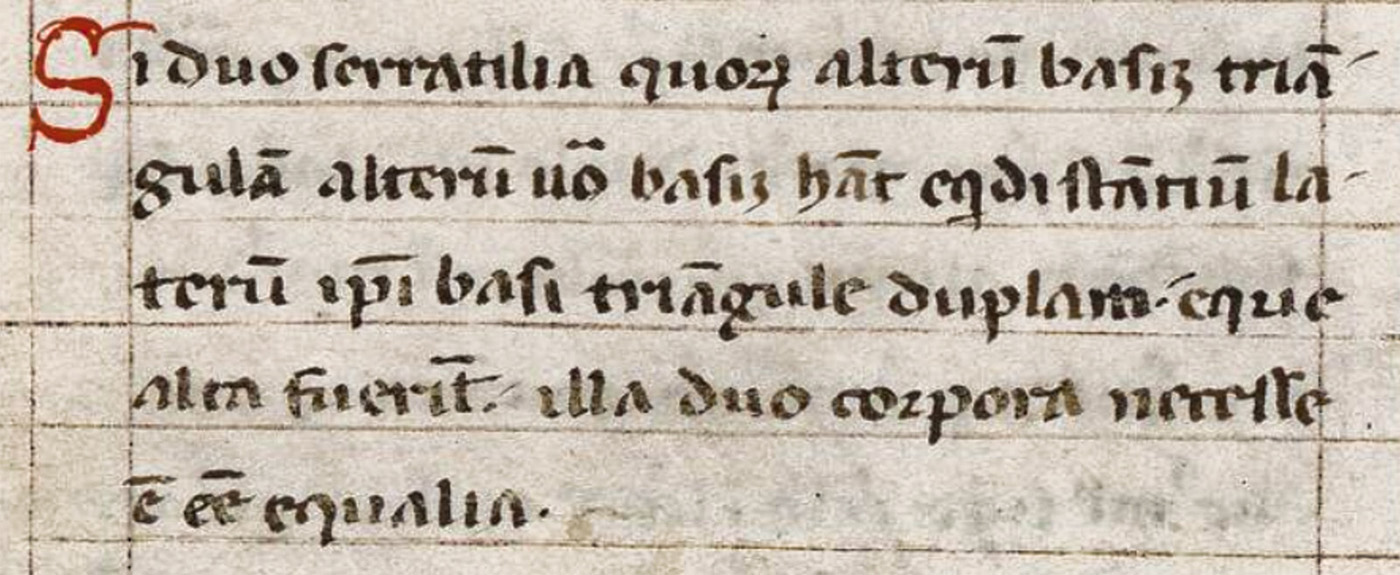 Si duo serratilia quoꝝ alterū basiꝫ triā-
gulā alterū uō basiꝫ hāt eqdistātiū la-
terū ip̄i basi triāgule duplam. eque
alta fuerīt. illa duo corpora necesse
ē eē equalia.